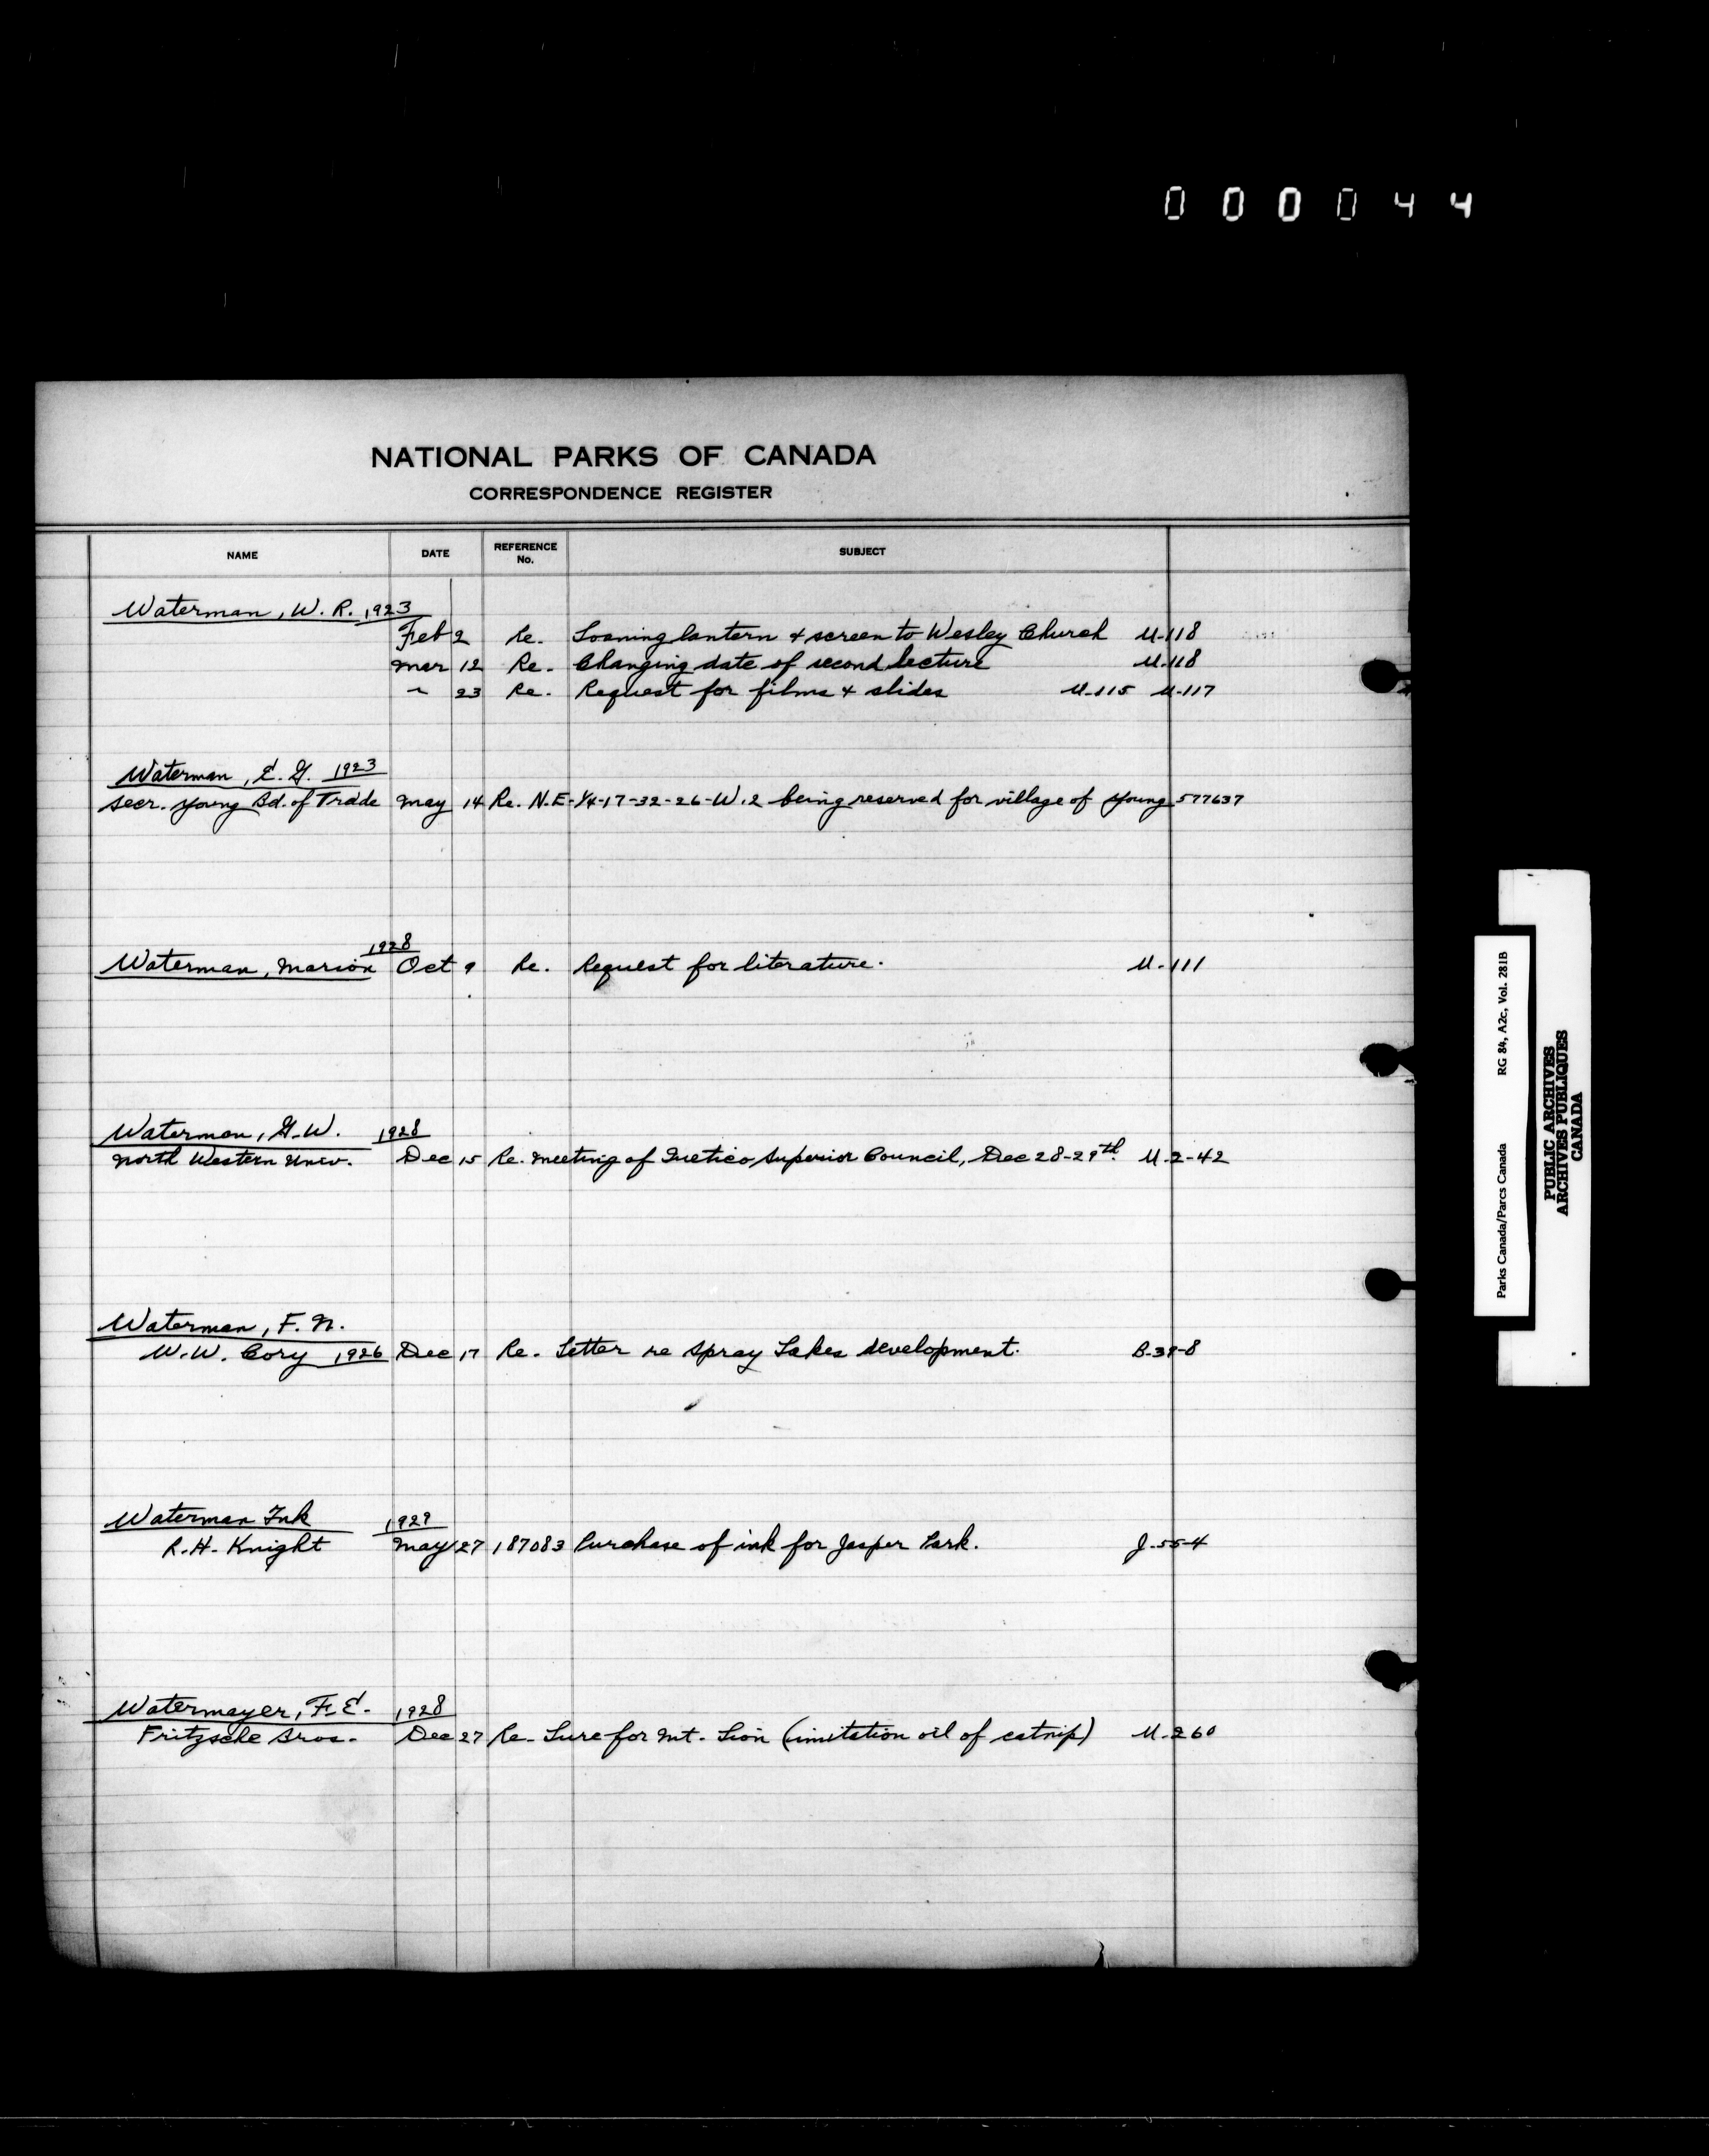 000044
NATIONAL PARKS OF CANADA
CORRESPONDENCE REGISTER
NAME DATE REFERENCE No. SUBJECT
Waterman, W. R. 1923
Feb 2 Re. Loaning lantern & screen to Wesley Church U-118
Mar 12 Re. Changing date of second lecture U-118
" 23 Re. Request for films & slides U-115 U-117
Waterman, E. G. 1923
Secr. Young Bd. of Trade May 14 Re. N.E-1/4-17-32-26-W.2 being reserved for village of Young 577637
1928
Waterman, Marion Oct 9 Re. Request for literature. U-111
Waterman, G. W. 1928
North Western Univ. Dec 15 Re. Meeting of Quetico Superior Council, Dec 28-29th. U-2-42
Waterman, F. N.
W. W. Cory 1926 Dec 17 Re. Letter re Spray Lakes development. B-39-8
Waterman Ink 1929
R. H. Knight May 27 187083 Purchase of ink for Jasper Park. J-55-4
Watermayer, F. E. 1928
Fritzsche Bros. Dec 27 Re. Lure for Mt. Lion (imitation oil of catnip) U-260
Parks Canada/Parcs Canada RG 84, A2c, Vol. 281B
PUBLIC ARCHIVES
ARCHIVES PUBLIQUES
CANADA